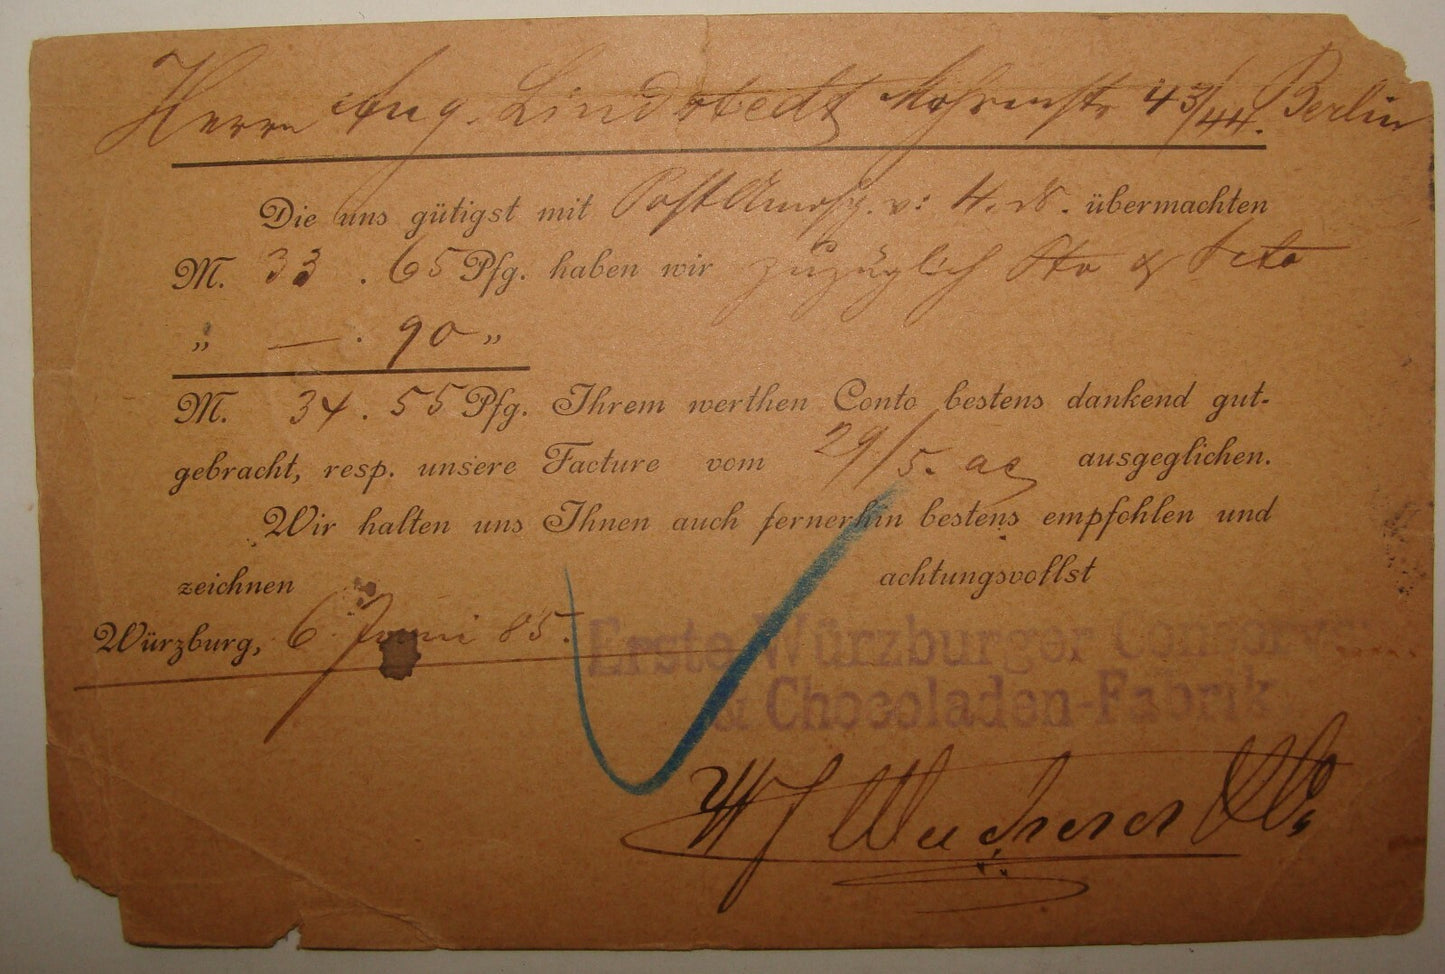 Herrn Aug. Lindstedt Mohrenstr 43/44. Berlin
Die uns gütigst mit v: 4. übermachten
M. 33 . 65 Pfg. haben wir zuzüglich Sto &
„ — . 90 „
M. 34 . 55 Pfg. Ihrem werthen Conto bestens dankend gut-
gebracht, resp. unsere Facture vom 29/5. ac ausgeglichen.
Wir halten uns Ihnen auch fernerhin bestens empfohlen und
zeichnen achtungsvollst
Würzburg, 6 Juni 85.
Erste Würzburger Conserv
& Chocoladen-Fabrik
W F Wucherer & Co